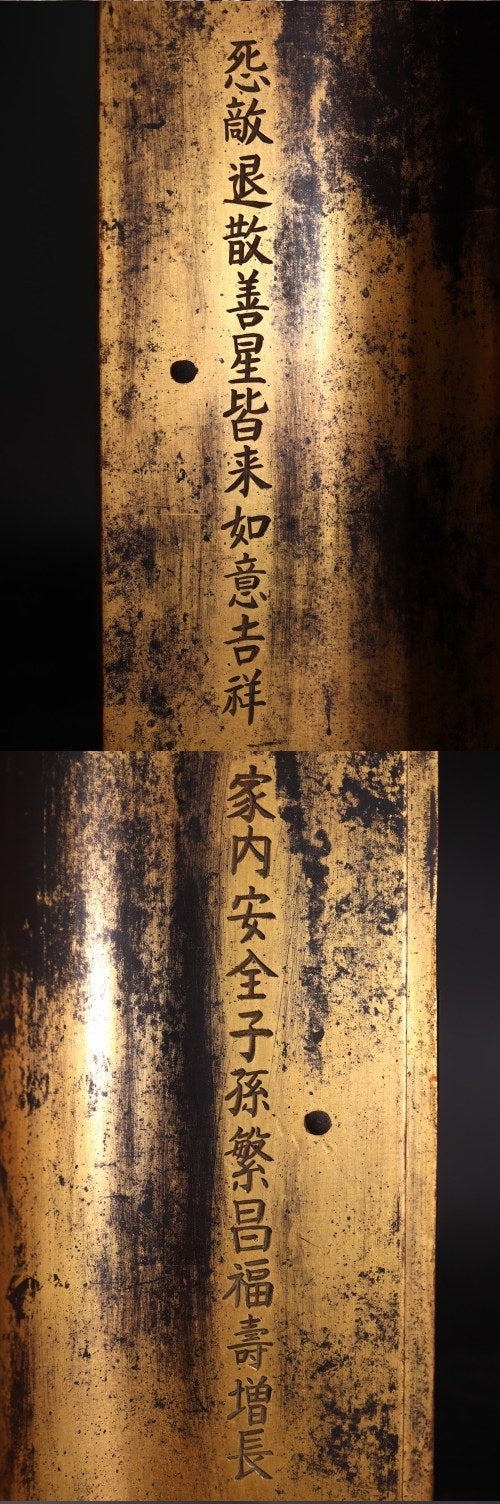 㤪敵退散善星皆来如意吉祥
家内安全子孫繁昌福壽増長